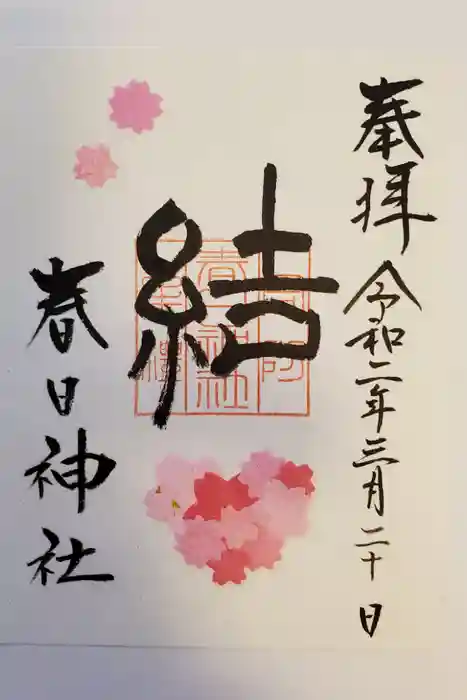 奉拝 令和二年三月二十日
結
春日神社